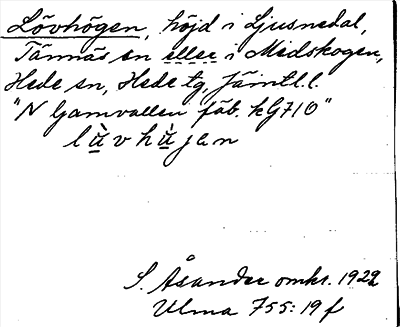 Lövhögen, höjd i Ljusnedal,
Tännäs sn eller i Medskogen,
Hede sn, Hede tg, Jämtl. l.
"N Gamvallen fäb. kG710"
lu̱̇̀vhu̱̇̀jan
S. Åsander omkr. 1922
Ulma 755: 19 f